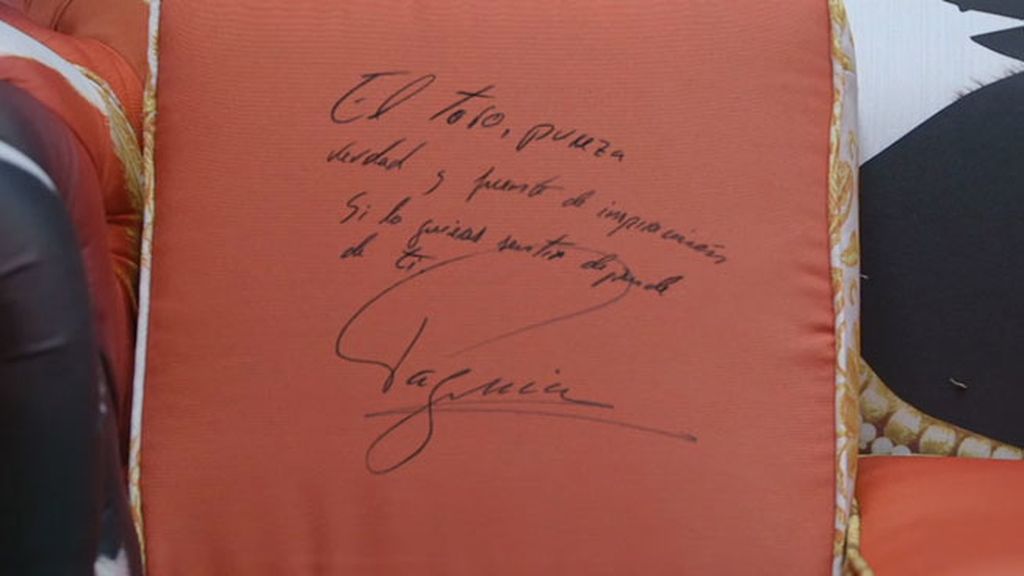 El toro, pureza
verdad y fuente de inspiración
Si lo quieres sentir depende
de ti
Paquirri